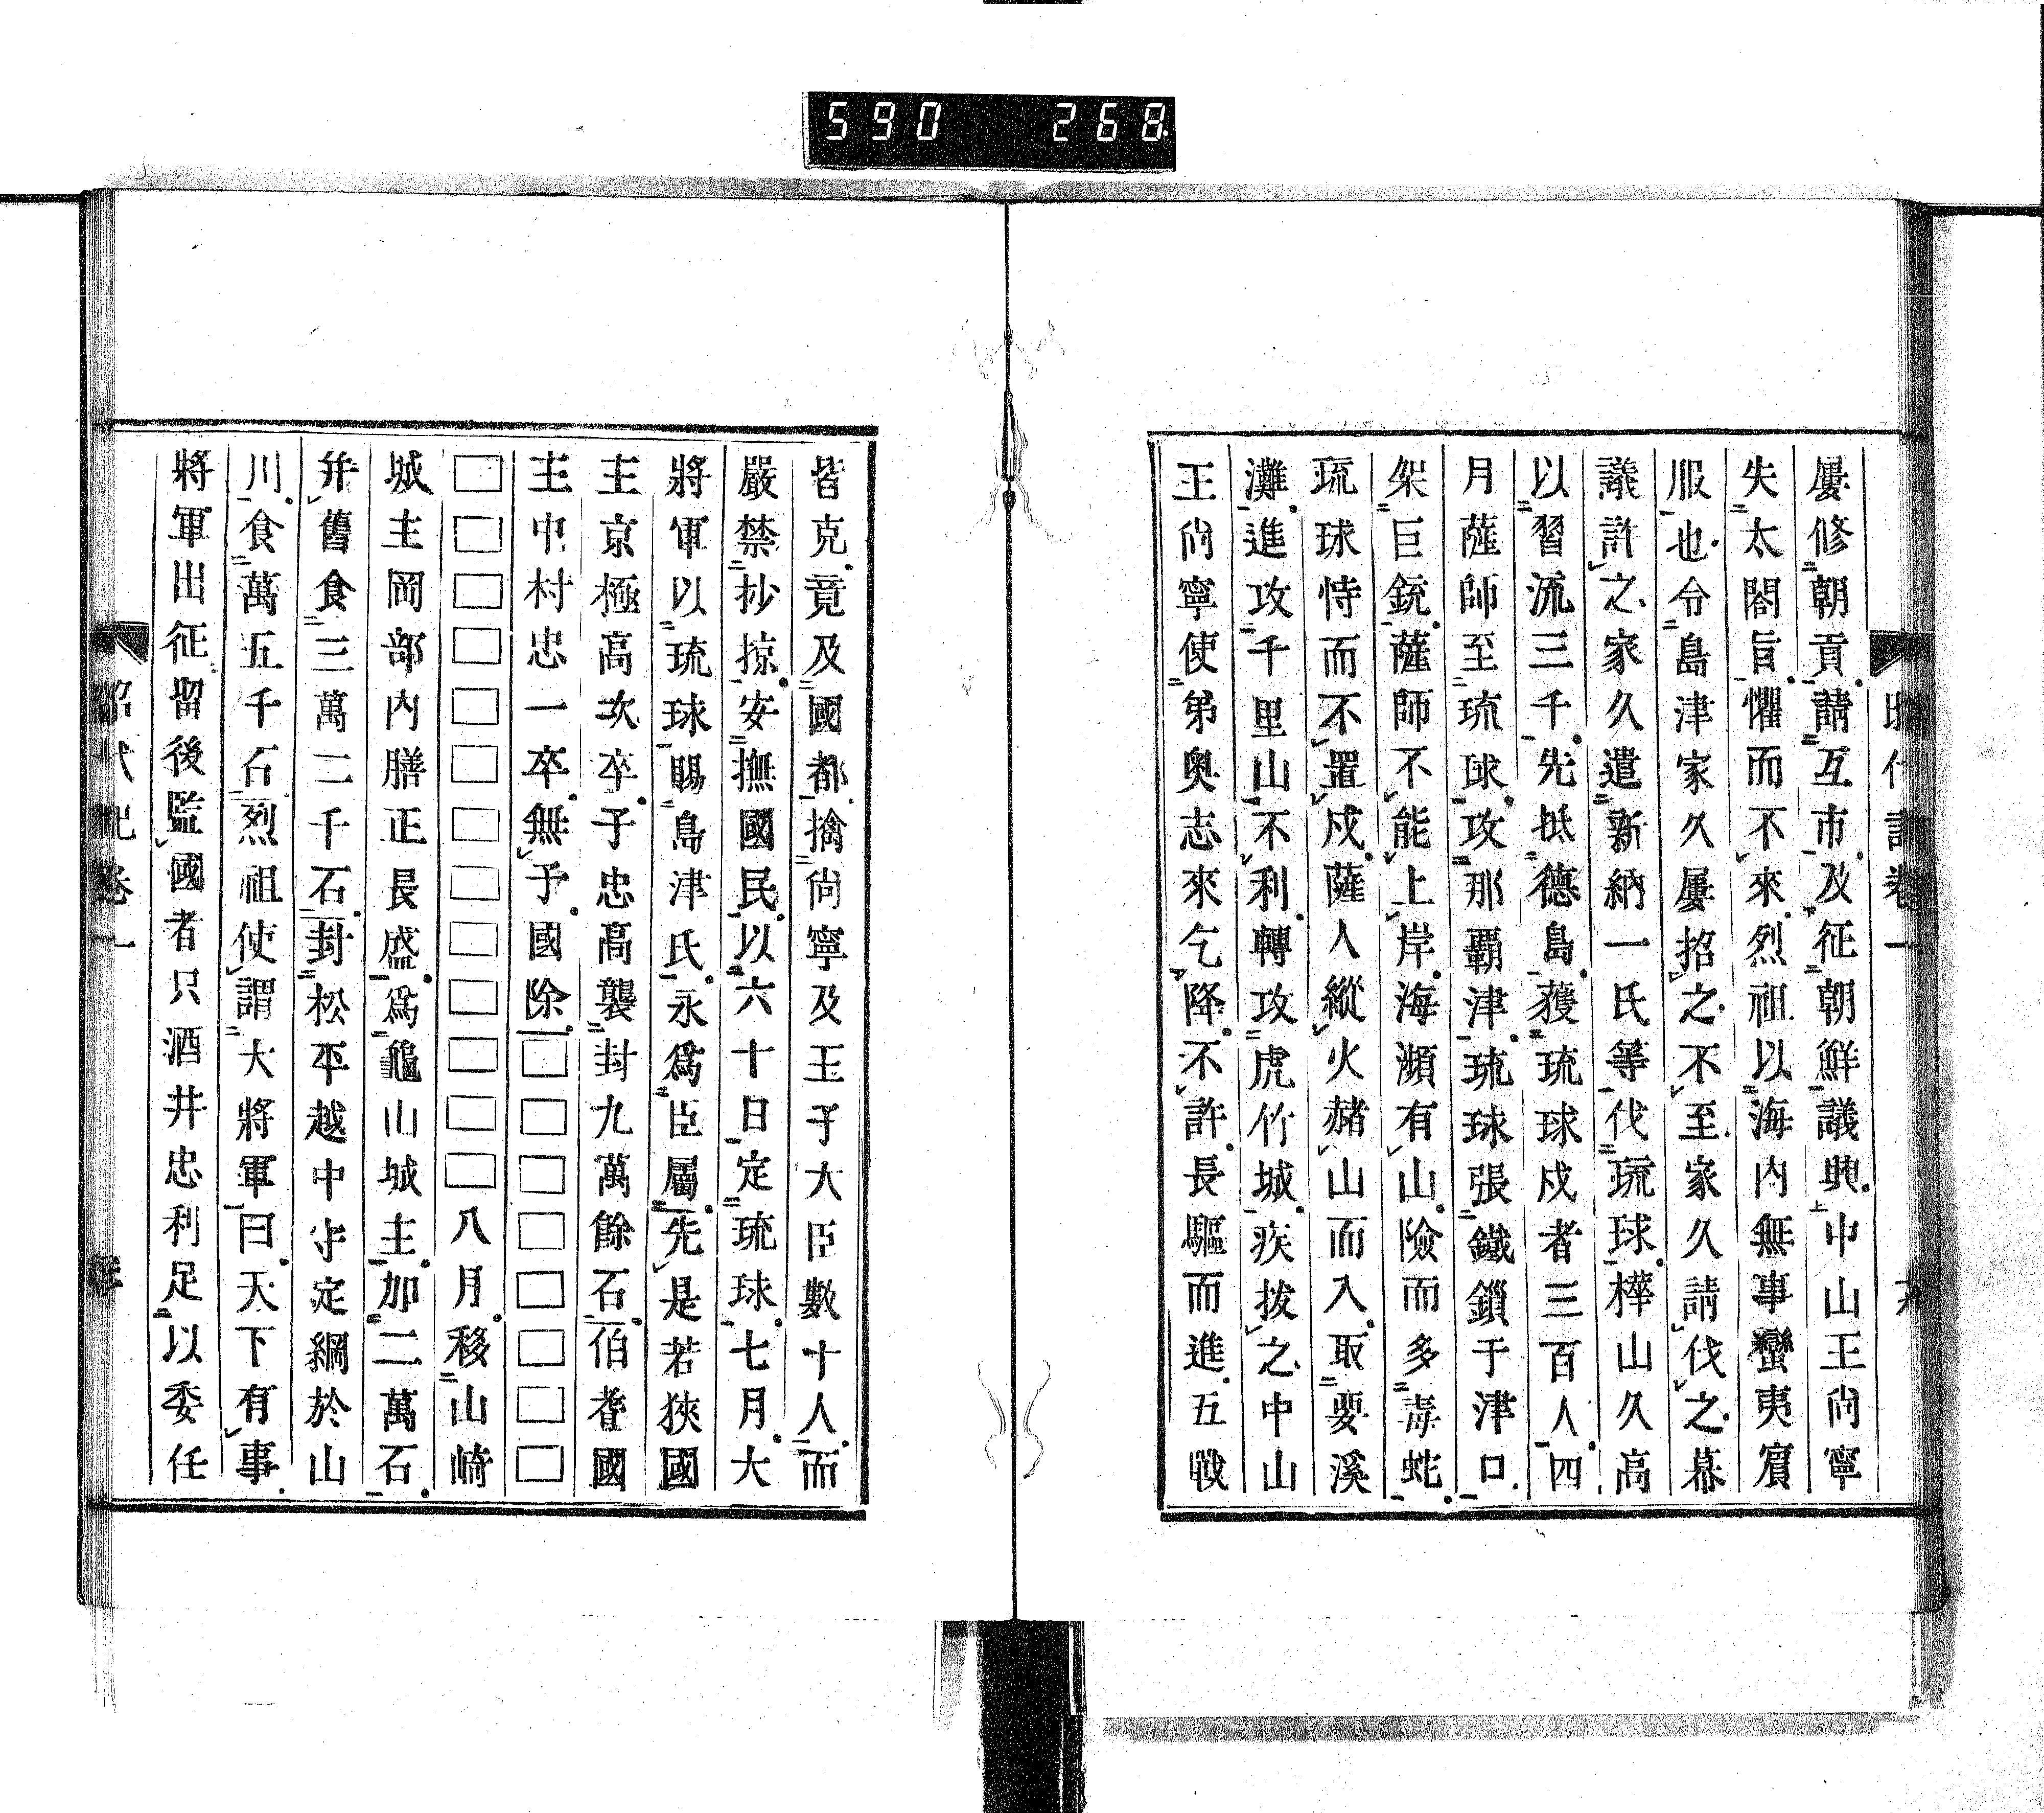 590 268
屢修朝貢請互市及征朝鮮議興中山王尙寧
失太閤旨懼而不來烈祖以海内無事蠻夷賓
服也令島津家久屢招之不至家久請伐之幕
議許之家久遣新納一氏等伐琉球樺山久高
以習流三千先抵德島獲琉球戍者三百人四
月薩師至琉球攻那覇津琉球張鐵鎖于津口
架巨銃薩師不能上岸海瀕有山險而多毒蛇
琉球恃而不置戍薩人縱火赭山而入取要溪
灘進攻千里山不利轉攻虎竹城疾拔之中山
王尙寧使弟奥志來乞降不許長驅而進五戰
皆克竟及國都擒尙寧及王子大臣數十人而
嚴禁抄掠安撫國民以六十日定琉球七月大
將軍以琉球賜島津氏永爲臣屬先是若狹國
主京極高次卒子忠高襲封九萬餘石伯耆國
主中村忠一卒無子國除□□□□□□□□
□□□□□□□□□□□□□八月移山崎
城主岡部内膳正長盛爲龜山城主加二萬石
幷舊食三萬二千石封松平越中守定綱於山
川食萬五千石烈祖使謂大將軍曰天下有事
將軍出征留後監國者只酒井忠利足以委任